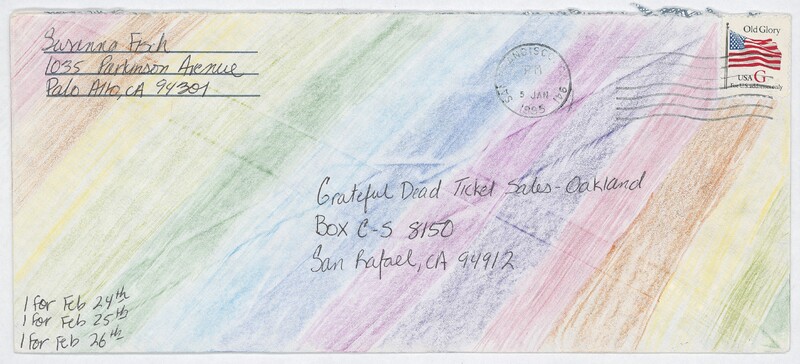 Susanna Fish
1035 Parkinson Avenue
Palo Alto, CA 94301
SAN FRANCISCO CA 941
PM
5 JAN
1995
Old Glory
USA G
For U.S. addresses only
Grateful Dead Ticket Sales - Oakland
Box C-S 8150
San Rafael, CA 94912
1 for Feb 24th
1 for Feb 25th
1 for Feb 26th